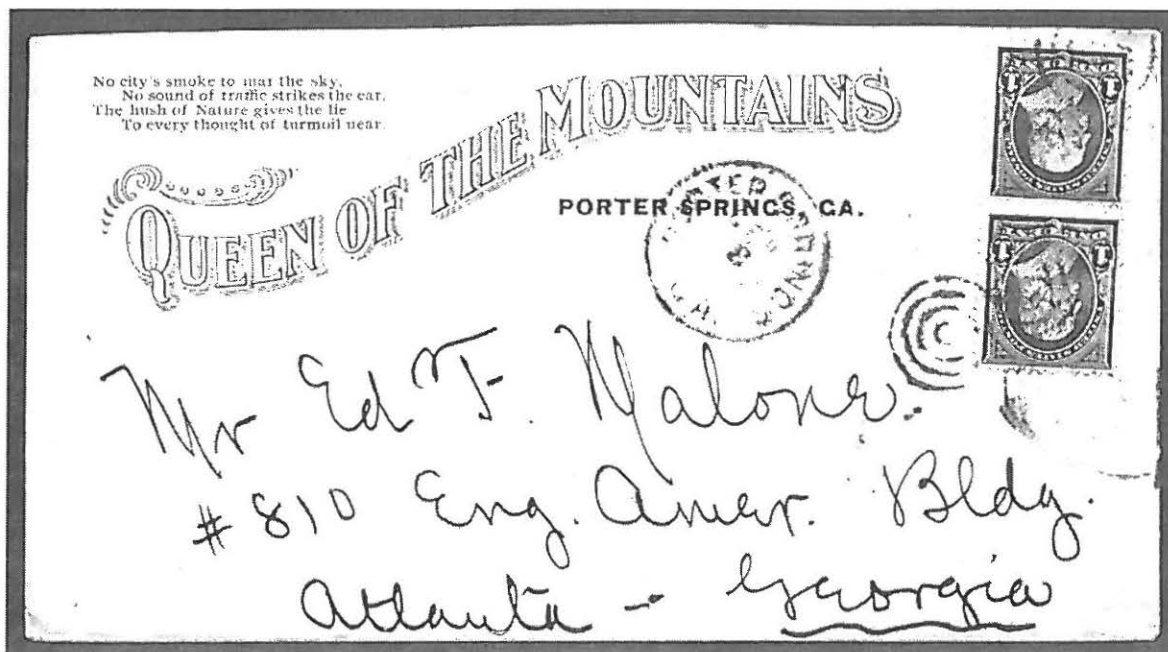 No city's smoke to mar the sky,
No sound of traffic strikes the ear,
The hush of Nature gives the lie
To every thought of turmoil near.
QUEEN OF THE MOUNTAINS
PORTER SPRINGS, GA.
PORTER SPRINGS
GA.
1 1
1 1
Mr Ed F. Malone.
#810 Eng. Amer. Bldg.
Atlanta - Georgia